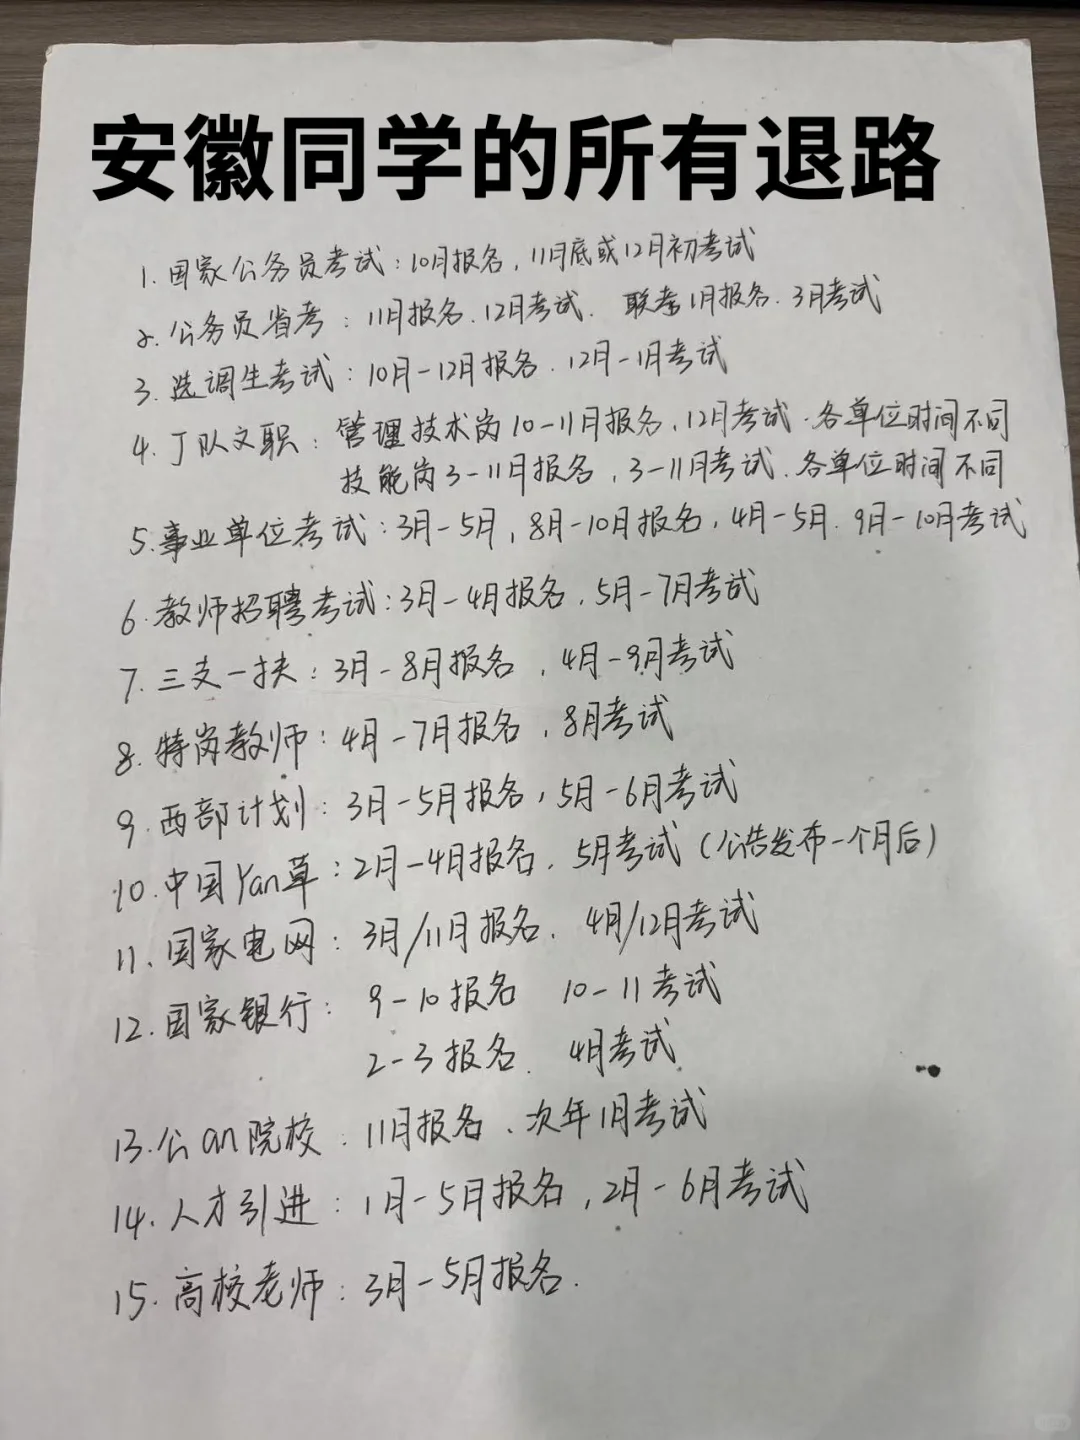 安徽同学的所有退路
1. 国家公务员考试：10月报名，11月底或12月初考试
2. 公务员省考：11月报名．12月考试． 联考1月报名．3月考试
3. 选调生考试：10月-12月报名．12月-1月考试
4. J队文职：管理技术岗10-11月报名，12月考试．各单位时间不同
技能岗3-11月报名，3-11月考试．各单位时间不同
5. 事业单位考试：3月-5月，8月-10月报名，4月-5月．9月-10月考试
6. 教师招聘考试：3月-4月报名，5月-7月考试
7. 三支一扶：3月-8月报名，4月-9月考试
8. 特岗教师：4月-7月报名，8月考试
9. 西部计划：3月-5月报名，5月-6月考试
10. 中国Yan草：2月-4月报名．5月考试（公告发布一个月后）
11. 国家电网：3月/11月报名．4月/12月考试
12. 国家银行：9-10报名 10-11考试
2-3报名．4月考试
13. 公an院校：11月报名、次年1月考试
14. 人才引进：1月-5月报名，2月-6月考试
15. 高校老师：3月-5月报名．